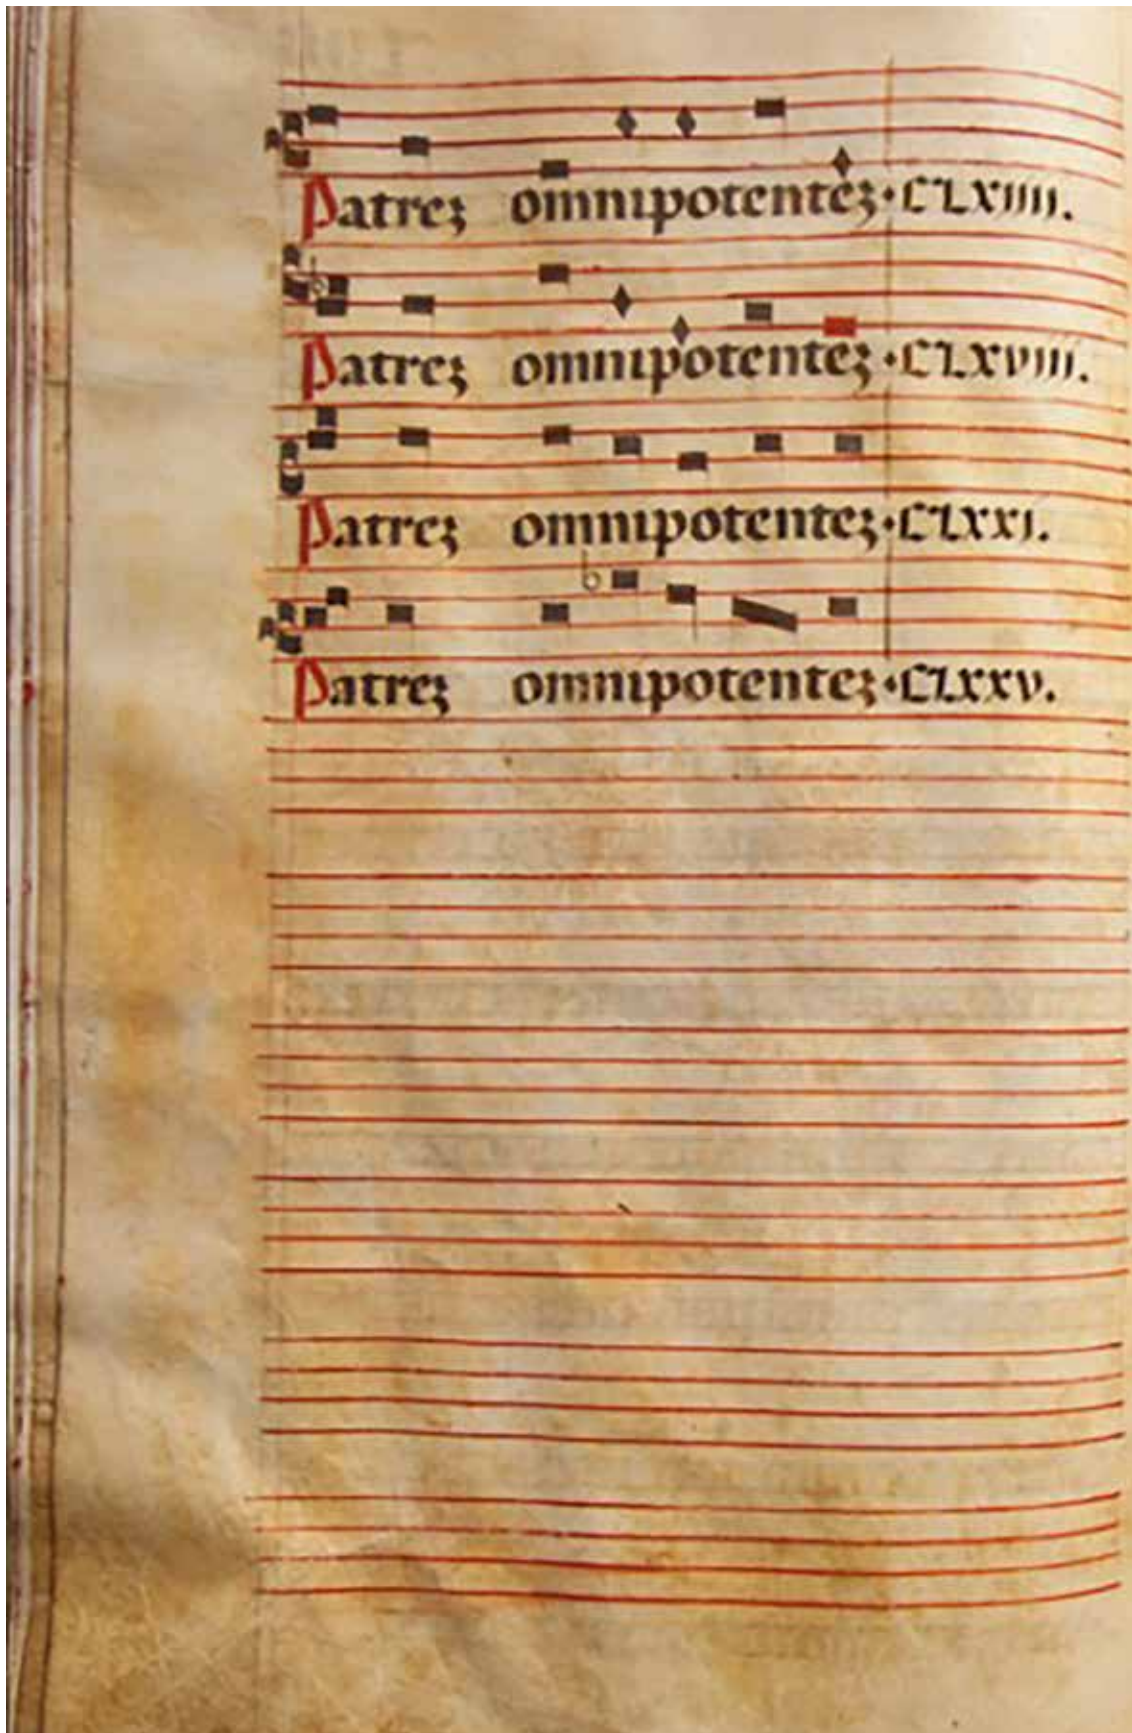 Patreʒ omnipotenteʒ·CLXIIII.
Patreʒ omnipotenteʒ·CLXVIII.
Patreʒ omnipotenteʒ·CLXXI.
Patreʒ omnipotenteʒ·CLXXV.